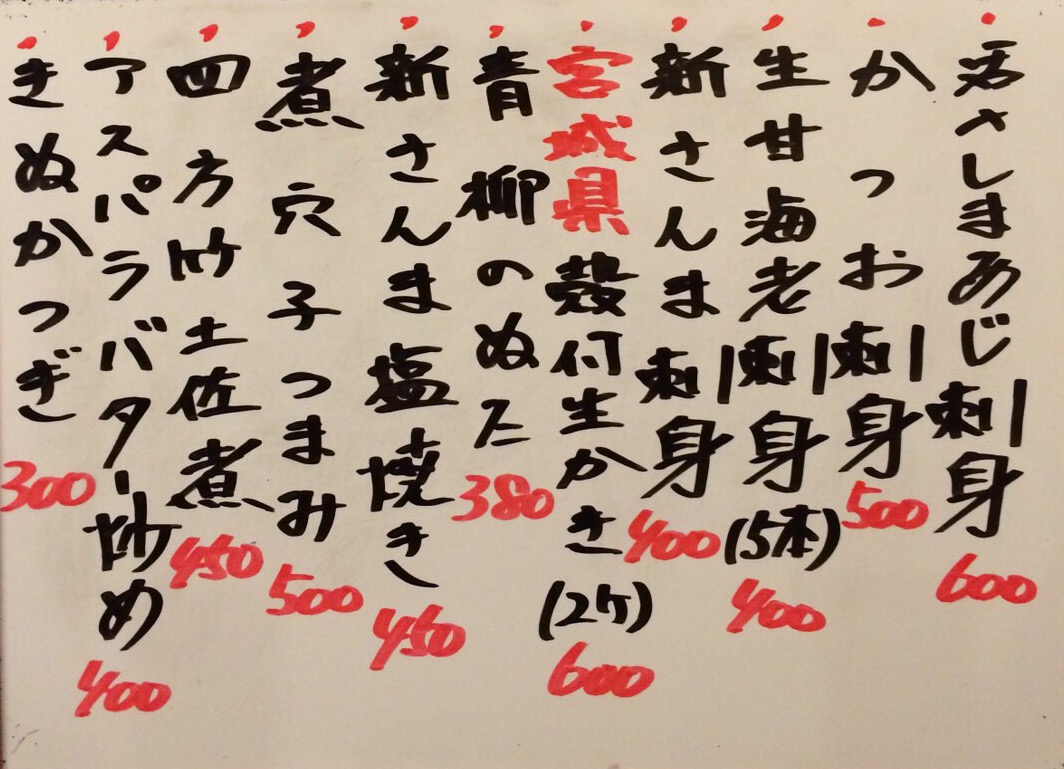 活さしまあじ刺身 600
かつお刺身 500
生甘海老刺身(5本) 400
新さんま刺身 400
宮城県殻付生かき(2ケ) 600
青柳のぬた 380
新さんま塩焼き 450
煮穴子つまみ 500
四方竹土佐煮 450
アスパラバター炒め 400
きぬかつぎ 300